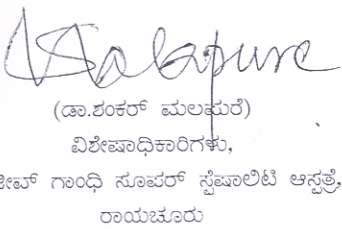 (ಡಾ.ಶಂಕರ್ ಮಲಪುರೆ)
ವಿಶೇಷಾಧಿಕಾರಿಗಳು,
ಗಾಂಧಿ ಸೂಪರ್ ಸ್ಪೆಷಾಲಿಟಿ ಆಸ್ಪತ್ರೆ,
ರಾಯಚೂರು